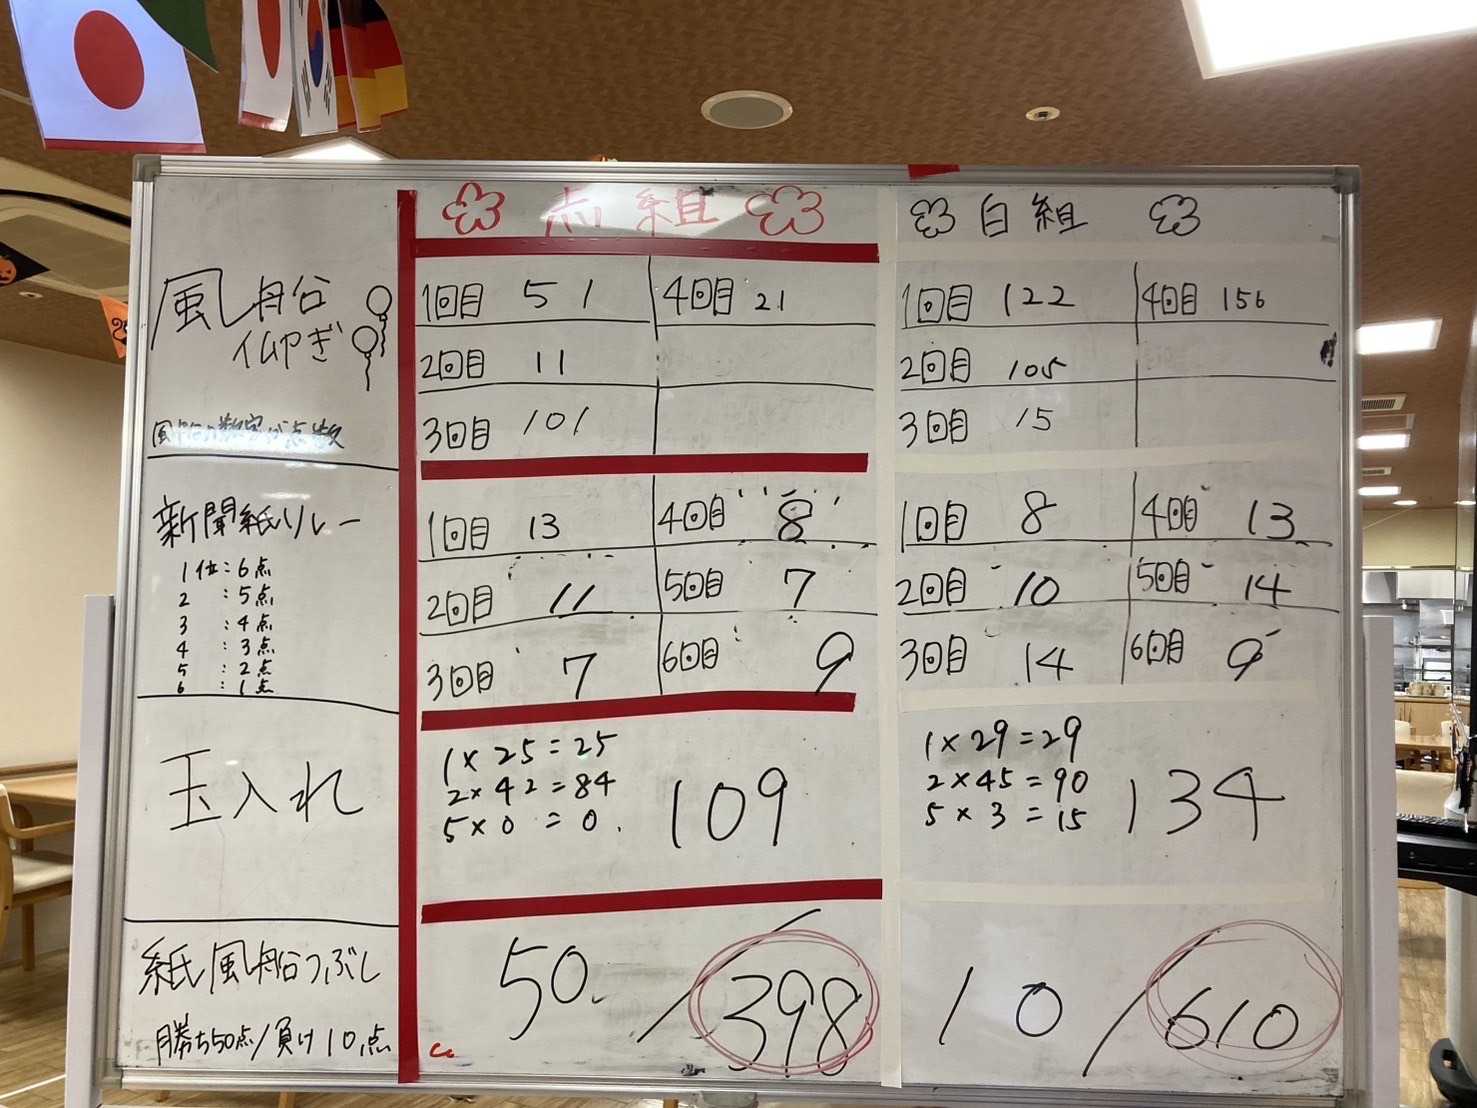 赤組
白組
風船
仰ぎ
風船の数字が点数
1回目 51
4回目 21
2回目 11
3回目 101
1回目 122
4回目 156
2回目 105
3回目 15
新聞紙リレー
1位:6点
2 :5点
3 :4点
4 :3点
5 :2点
6 :1点
1回目 13
4回目 8
2回目 11
5回目 7
3回目 7
6回目 9
1回目 8
4回目 13
2回目 10
5回目 14
3回目 14
6回目 9
玉入れ
1×25=25
2×42=84
5×0=0.
109
1×29=29
2×45=90
5×3=15
134
紙風船つぶし
勝ち50点/負け10点
50/398
10/610